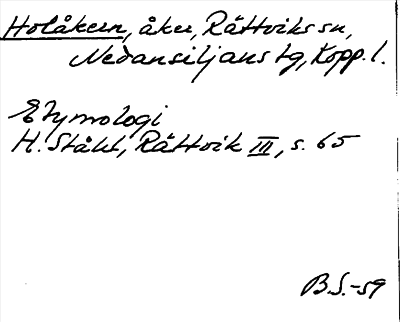 Holåkern, åker, Rättviks sn,
Nedansiljans tg, Kopp. l.
Etymologi
H. Ståhl, Rättvik III, s. 65
B.S.-59